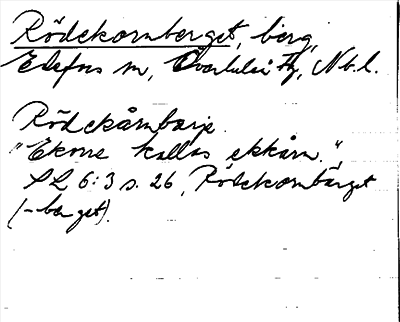 Rödekornberget, berg,
Edefors sn, Överluleå tg, Nb.l.
Rödekårnbärje.
"Ekorre kallas ekkårn.",
SL 6:3 s. 26, Rödekornbärget
(-berget).